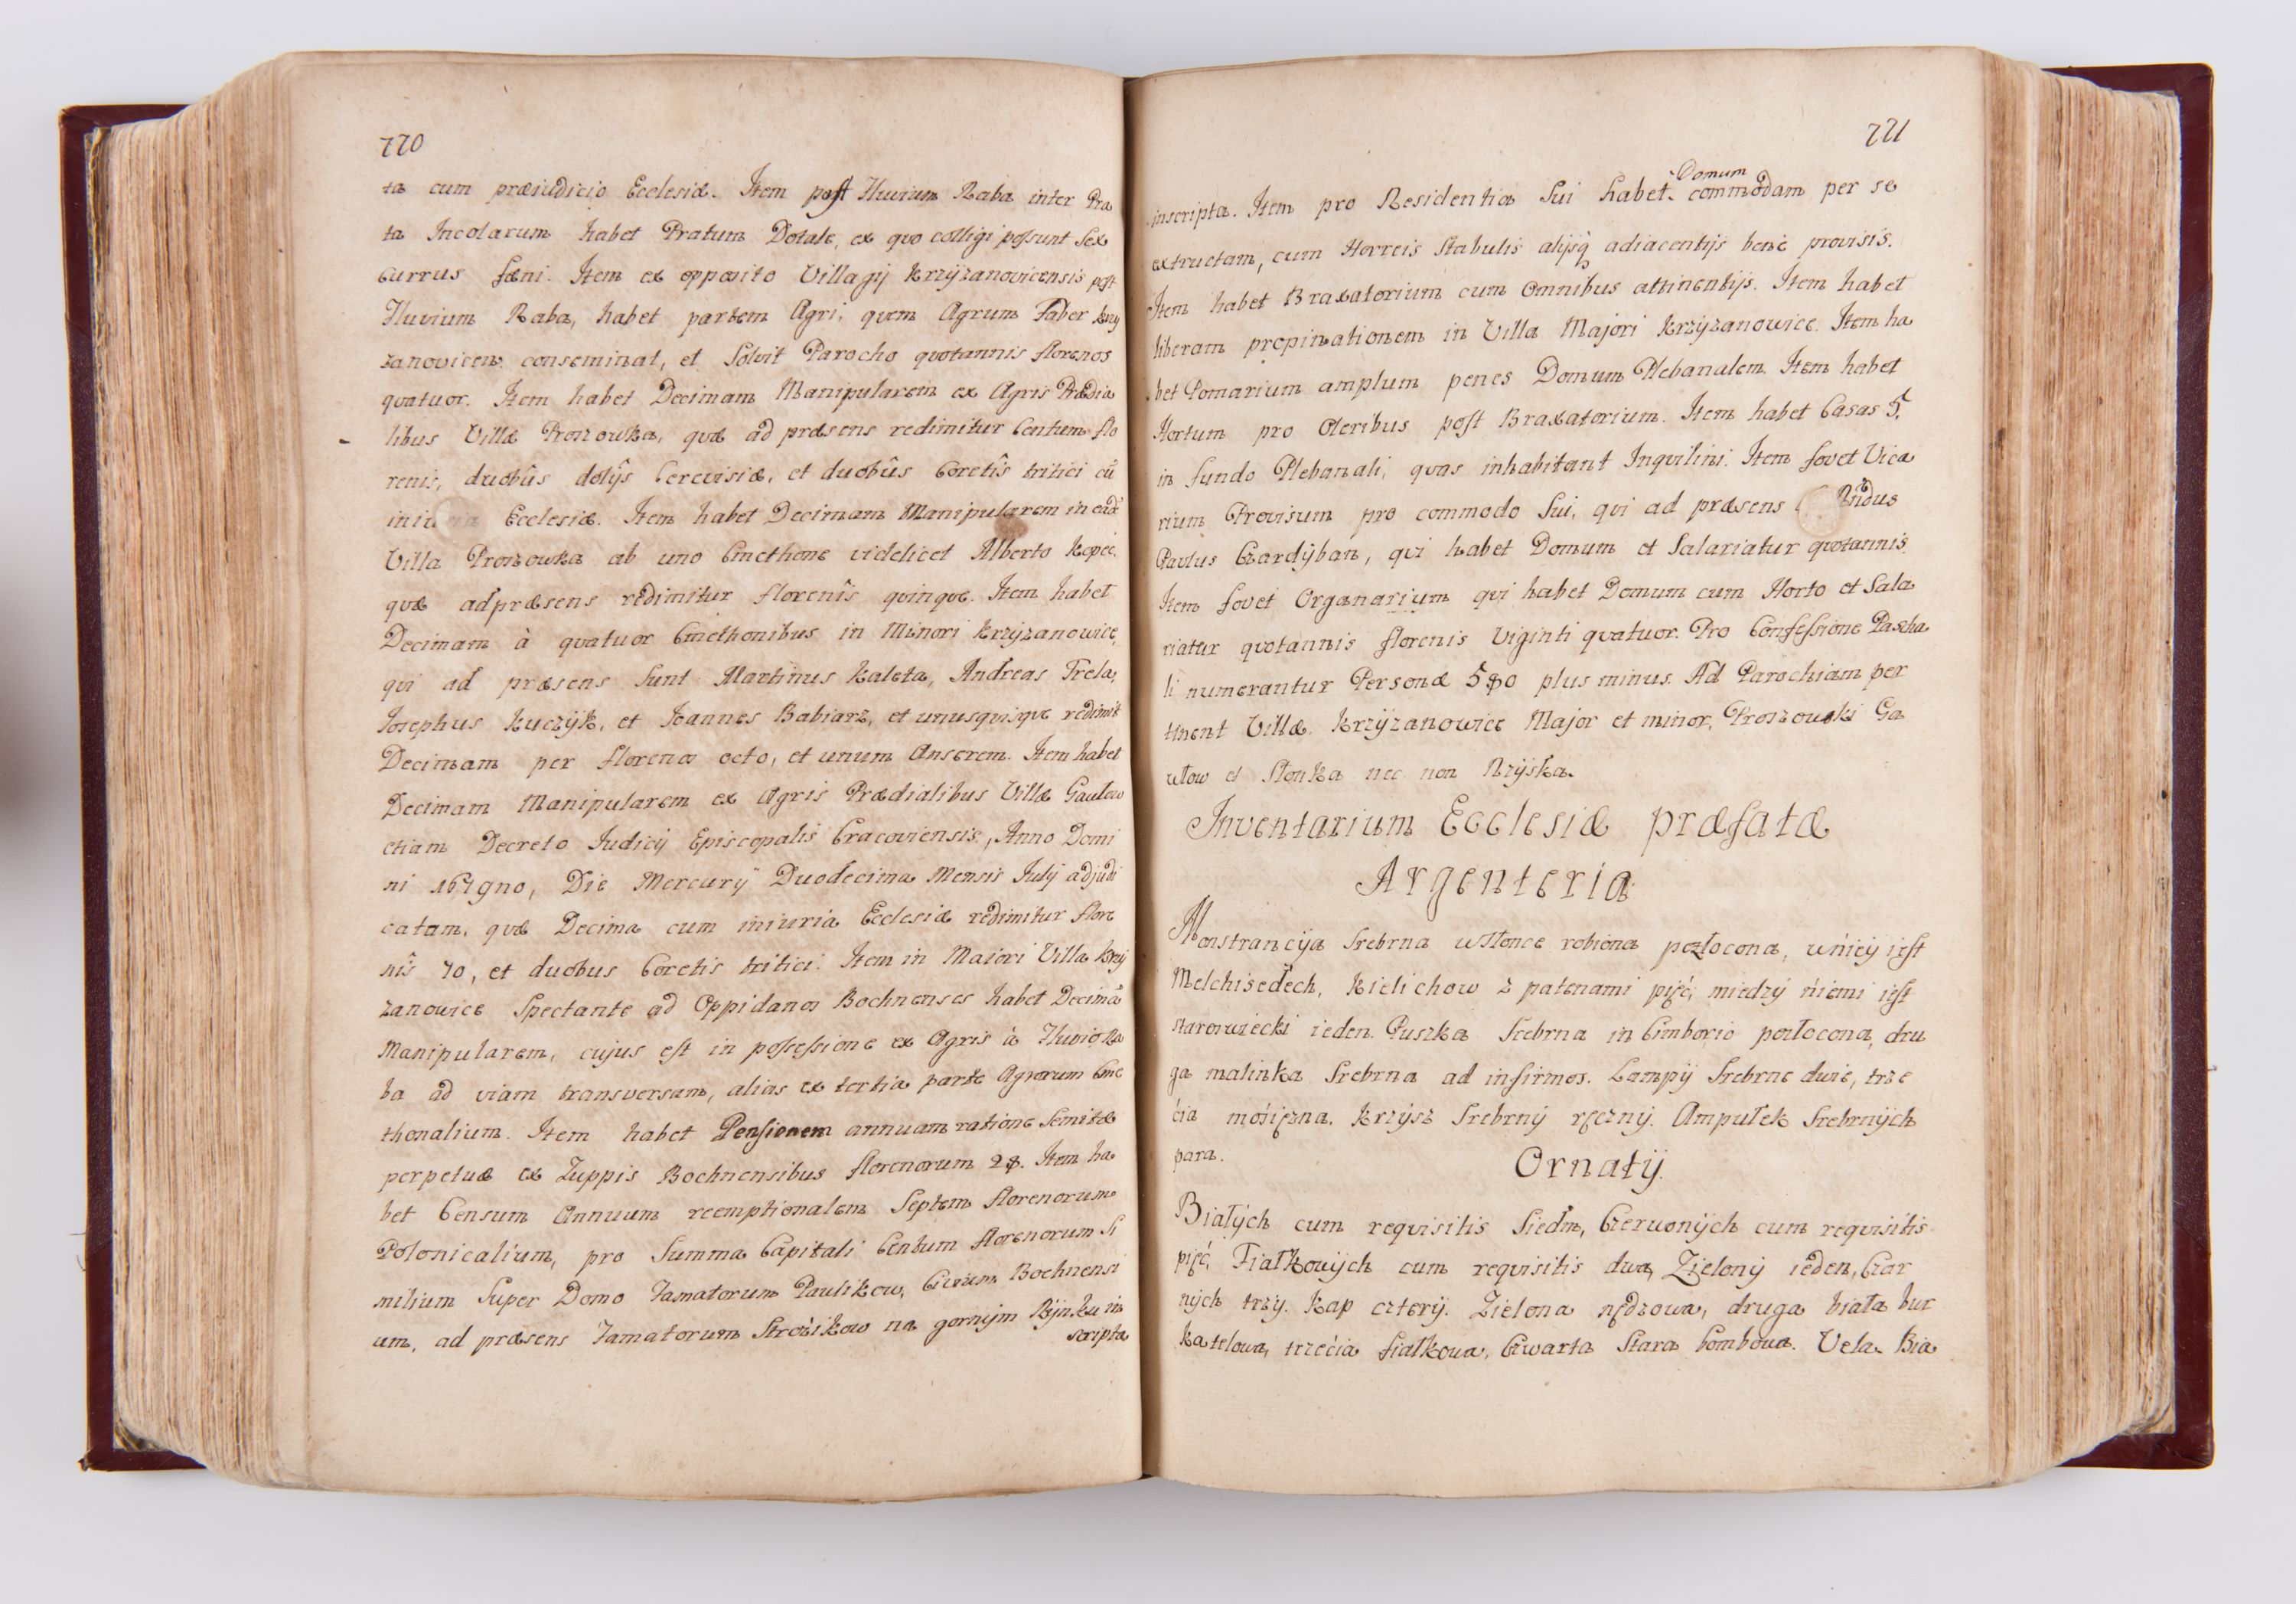 770
ta cum præiudicio Ecclesiæ. Item post Fluvium Raba inter Pra
ta Incolarum habet Pratum Dotale, ex quo colligi possunt Sex
currus fæni. Item ex opposito Villagij Krzÿzanovicensis post
Fluvium Raba, habet partem Agri, quem Agrum Faber Krzy
zanovicen: conseminat, et Solvit Parocho quotannis florenos
quatuor. Item habet Decimam Manipularem ex Agris Prædia
libus Villæ Proszowka, quæ ad præsens redimitur Centum flo
renis, duobûs dolÿs Cerevisiæ, et duobûs Coretîs tritici cũ
iniuria Ecclesiæ. Item habet Decimam Manipularem in eadẽ
Villa Proszowka ab uno Cmethone videlicet Alberto Kopeć,
quæ adpræsens redimitur florenîs quinque. Item habet
Decimam à quatuor Cmethonibus in Minori Krzÿzanowice,
qui ad præsens Sunt Martinus Kaleta, Andreas Trela,
Josephus Kuczÿk, et Joannes Babiarz, et unusquisque redimit
Decimam per florenos octo, et unum Anserem. Item habet
Decimam Manipularem ex Agris Prædialibus Villæ Gawlow
etiam Decreto Judicij Episcopalis Cracoviensis, Anno Domi
ni 1679no, Die Mercurÿ Duodecima Mensis Julij adjudi
catam, quæ Decima cum iniuria Ecclesiæ redimitur flore
nîs 70, et duobus Coretis tritici. Item in Maiori Villa Krzÿ
zanowice Spectante ad Oppidanos Bochnenses habet Decimã
Manipularem, cujus est in possessione ex Agris à Fluvio Ra
ba ad viam transversam, alias ex tertia parte Agrorum Cme
thonalium. Item habet Pensionem annuam ratione Semitæ
perpetuæ ex Zuppis Bochnensibus florenorum 28. Item ha
bet Censum Annuum reemptionalem Septem florenorum
Polonicalium, pro Summa Capitali Centum florenorum Si
milium Super Domo Famatorum Paulikow, Civium Bochnensi
um, ad præsens Famatorum Strózikow na gornÿm Rÿnku in
scripta
771
inscripta. Item pro Residentia Sui habet Domum commodam per se
extructam, cum Horreis Stabulis alijsq adiacentijs bene provisis.
Item habet Braxatorium cum Omnibus attinentijs. Item habet
liberam propinationem in Villa Majori Krzÿzanowice. Item ha
bet Pomarium amplum penes Domum Plebanalem. Item habet
Hortum pro Oleribus post Braxatorium. Item habet Casas 5,
in fundo Plebanali, quas inhabitant Inquilini. Item fovet Vica
rium Provisum pro commodo Sui, qui ad præsens Rñdus
Paulus Czardÿban, qui habet Domum et Salariatur quotannis.
Item fovet Organarium qui habet Domum cum Horto et Sala
riatur quotannis florenis Viginti quatuor. Pro Confessione Pascha
li numerantur Personæ 580 plus minus. Ad Parochiam per
tinent Villæ. Krzÿzanowice Major et minor, Proszowki Ga
włow et Słonka nec non Rzÿska.
Inventarium Ecclesiæ præfatæ
Argenteria
Monstrancÿa Srebrna w Słonce robiona pozłocona, w nieÿ iest
Melchisedech, Kielichow z patenami pięć, międzÿ niemi iest
staroswiecki ieden. Puszka Srebrna in Cimborio pozłocona, dru
ga malinka Srebrna ad infirmos. Lampÿ Srebrne dwie, trze
cia mosiężna. Krzÿsz Srebrnÿ ręcznÿ. Ampułek Srebrnÿch
para.
Ornatÿ.
Białÿch cum requisitis Siedm, Czerwonÿch cum requisitis
pięć, Fiałkowÿch cum requisitis dwa, Zielonÿ ieden, Czar
nÿch trzÿ. Kap czterÿ. Zielona nędzowa, druga biała bur
katelowa, trzecia fiałkowa, Czwarta Stara bombowa. Vela. Bia